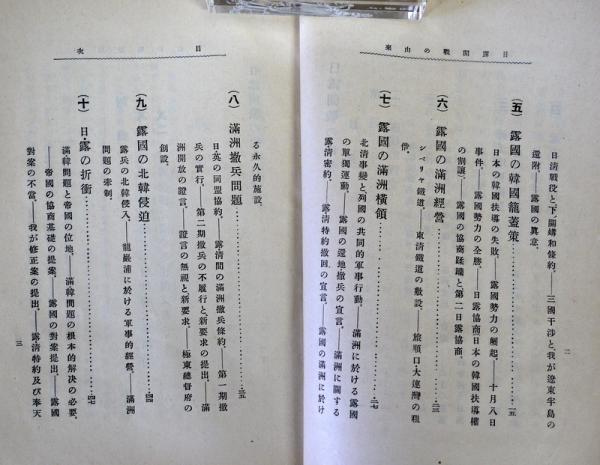 日露開戰の由來
二
日清戰役と下ノ關媾和條約――三國干涉と我が遼東半島の
還附――露國の眞意。
(五) 露國の韓國籠蓋策……一五
日本の韓國扶導の失敗――露國勢力の崛起――十月八日
事件――露國勢力の全勝――日露協商日本の韓國扶導權
の割讓――露國の協商蹂躪と第二日露協商。
(六) 露國の滿洲經營……二三
シベリヤ鐵道――東淸鐵道の敷設――旅順口大連灣の租
借。
(七) 露國の滿洲橫領……二七
北淸事變と列國の共同的軍事行動――滿洲に於ける露國
の單獨運動――露國の還地撤兵の宣言――滿洲に關する
露淸密約――露淸特約撤回の宣言――露國の滿洲に於け
目次
る永久的施設。
(八) 滿洲撤兵問題……三五
日英の同盟協約――露淸間の滿洲撤兵條約――第一期撤
兵の實行――第二期撤兵の不履行と新要求の提出――滿
洲開放の證言――證言の無視と新要求――極東總督府の
創設。
(九) 露國の北韓侵迫……四四
露兵の北韓侵入――龍巖浦に於ける軍事的經營――滿洲
問題の牽制
(十) 日・露の折衝……四七
滿韓問題と帝國の位地――滿韓問題の根本的解決の必要。
――帝國の協商基礎の提案――露國の對案提出――露國
對案の不當――我が修正案の提出――露淸特約及び奉天
三